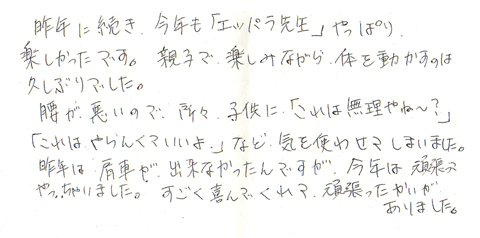 昨年に続き、今年も「エッパラ先生」やっぱり、
楽しかったです。親子で、楽しみながら、体を動かすのは
久しぶりでした。
腰が、悪いので、所々、子供に、「これは無理やね〜?」
「これは、やらんくていいよ。」など、気を使わせてしまいました。
昨年は、肩車が、出来なかったんですが、今年は、頑張って
やっちゃいました。すごく喜んでくれて、頑張ったかいが
ありました。